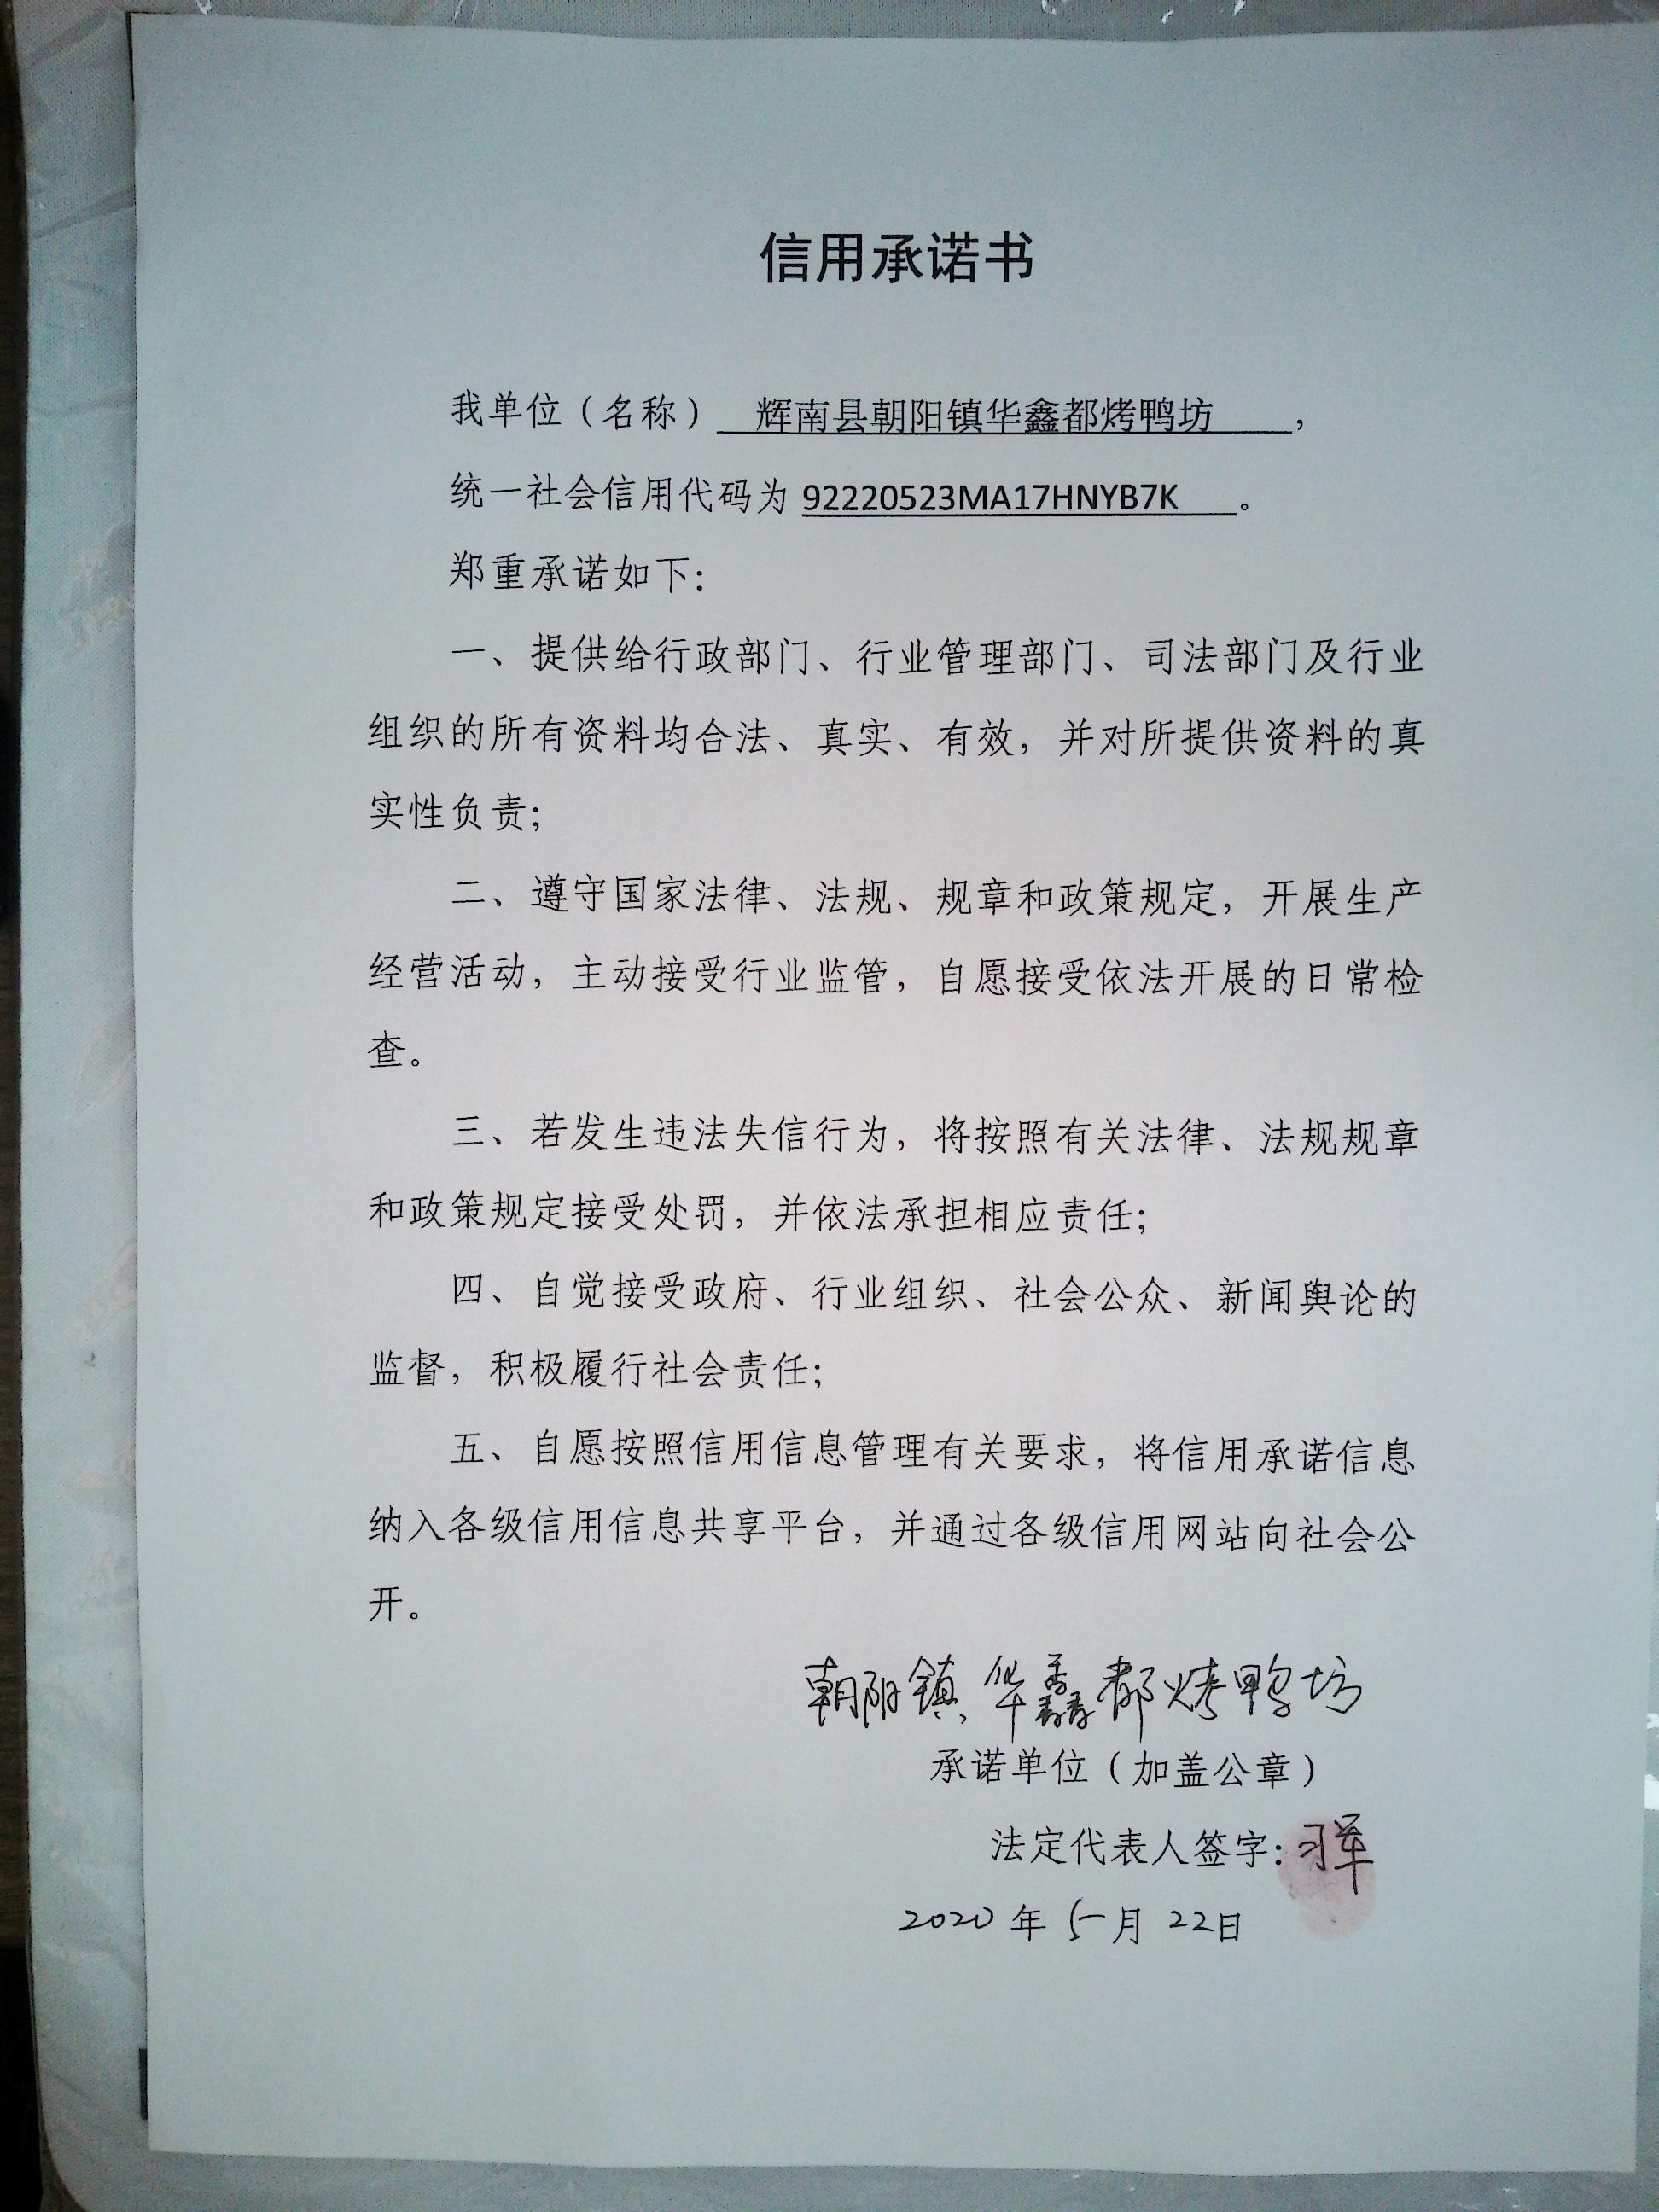 信用承诺书
我单位（名称） 辉南县朝阳镇华鑫都烤鸭坊 ，
统一社会信用代码为 92220523MA17HNYB7K 。
郑重承诺如下：
一、提供给行政部门、行业管理部门、司法部门及行业
组织的所有资料均合法、真实、有效，并对所提供资料的真
实性负责；
二、遵守国家法律、法规、规章和政策规定，开展生产
经营活动，主动接受行业监管，自愿接受依法开展的日常检
查。
三、若发生违法失信行为，将按照有关法律、法规规章
和政策规定接受处罚，并依法承担相应责任；
四、自觉接受政府、行业组织、社会公众、新闻舆论的
监督，积极履行社会责任；
五、自愿按照信用信息管理有关要求，将信用承诺信息
纳入各级信用信息共享平台，并通过各级信用网站向社会公
开。
朝阳镇华鑫都烤鸭坊
承诺单位（加盖公章）
法定代表人签字：
2020 年 5 月 22日